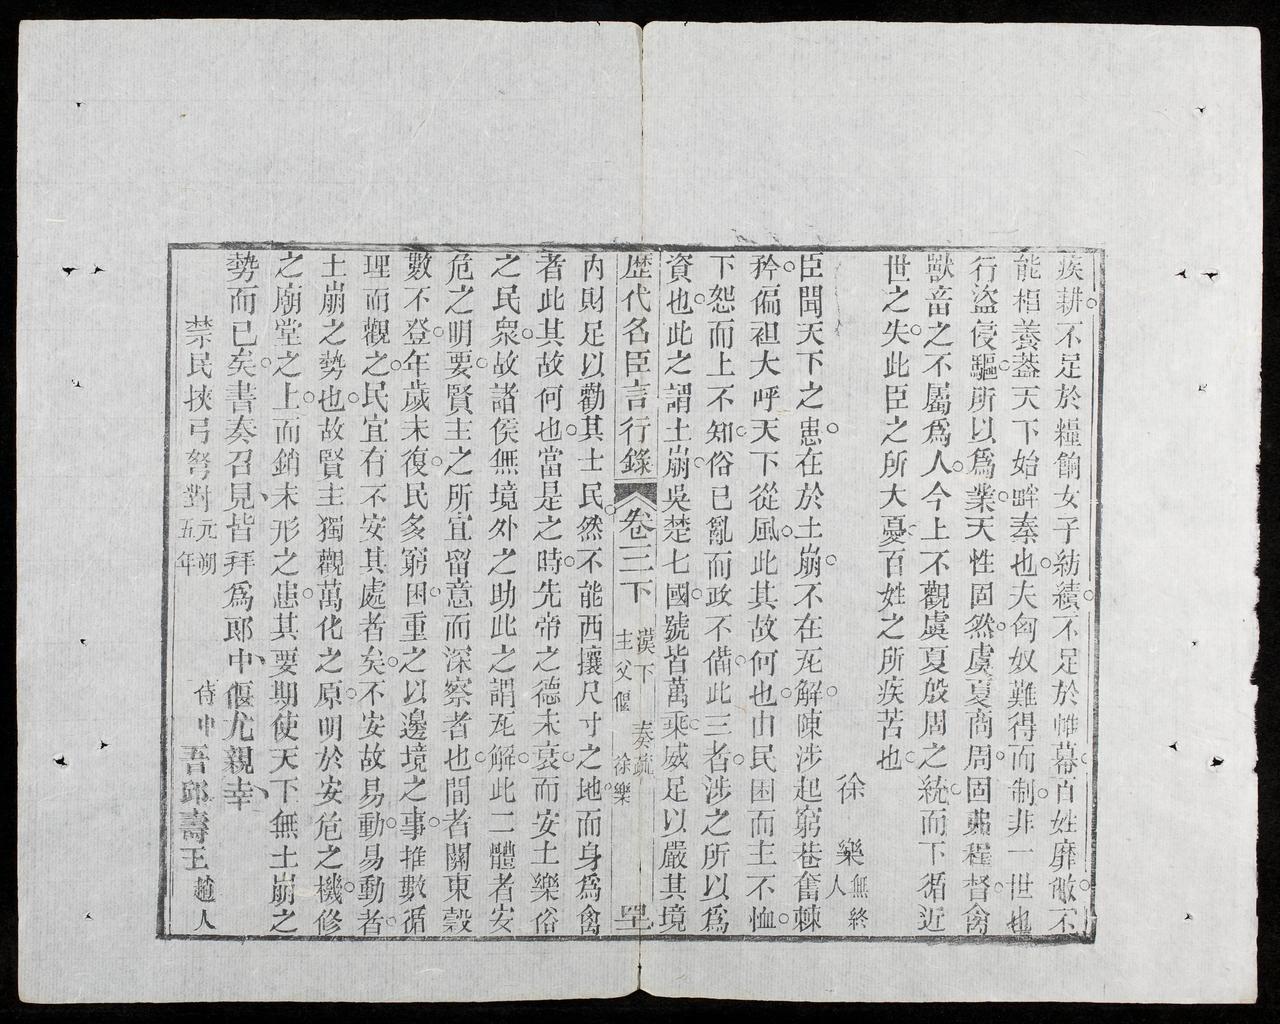 疾耕不足於糧餉女子紡績不足於帷幕百姓靡敝不
能相養蓋天下始畔秦也夫匈奴難得而制非一世也
行盜侵驅所以為業天性固然虞夏商周固弗程督禽
獸畜之不屬為人今上不觀虞夏殷周之統而下循近
世之失此臣之所大憂百姓之所疾苦也
徐樂無終人
臣聞天下之患在於土崩不在瓦解陳涉起窮巷奮棘
矜偏袒大呼天下從風此其故何也由民困而主不恤
下怨而上不知俗已亂而政不備此三者涉之所以為
資也此之謂土崩吳楚七國號皆萬乘威足以嚴其境
歷代名臣言行錄 卷三下 漢下 奏疏 主父偃 徐樂 
內則足以勸其士民然不能西攘尺寸之地而身為禽
者此其故何也當是之時先帝之德未衰而安土樂俗
之民衆故諸侯無境外之助此之謂瓦解此二體者安
危之明要賢主之所宜留意而深察者也間者關東穀
數不登年歲未復民多窮困重之以邊境之事推數循
理而觀之民宜有不安其處者矣不安故易動易動者
土崩之勢也故賢主獨觀萬化之原明於安危之機修
之廟堂之上而銷未形之患其要期使天下無土崩之
勢而已矣書奏召見皆拜為郎中偃尤親幸
禁民挾弓弩對元朔五年 侍中吾邱壽王趙人